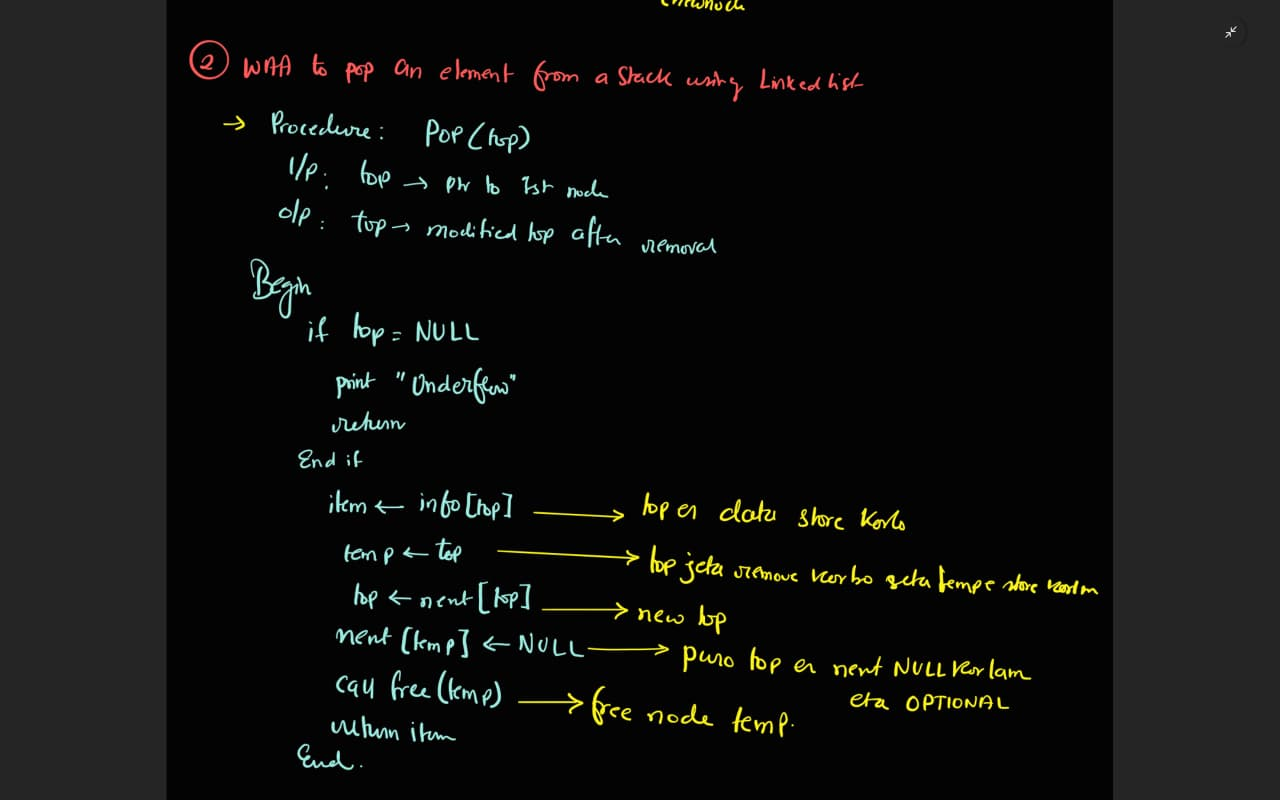 (newnode
② WAA to pop an element from a stack using Linked list
→ Procedure: POP(top)
I/p: top → ptr to 1st node
o/p: top → modified top after removal
Begin
if top = NULL
print "Underflow"
return
End if
item ← info[top] → top er data store korlo
temp ← top → top jeta remove korbo seta tempe store korlm
top ← next[top] → new top
next[temp] ← NULL → puro top er next NULL korlam
eta OPTIONAL
call free(temp) → free node temp.
return item
End.